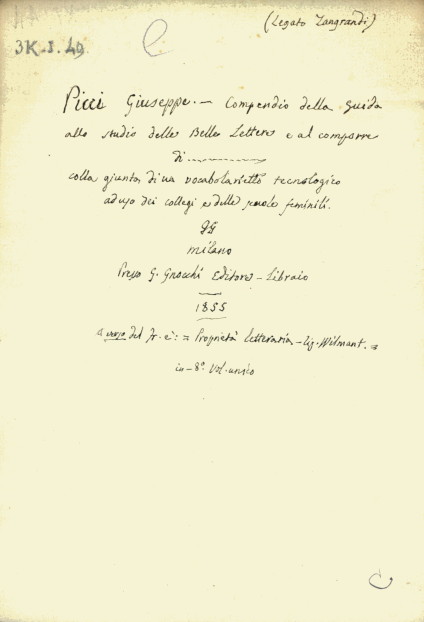 (Legato Zangrandi)
3K.I.49
Picci Giuseppe. — Compendio della guida
allo studio delle Belle Lettere e al comporre
di
colla giunta di un vocabolarietto tecnologico
ad uso dei collegi e delle scuole feminili.
GG
Milano
Presso G. Gnocchi Editore - Libraio
1855
a verso del fr. è: = Proprietà letteraria - Tip. Wilmant. =
in-8°. Vol. unico